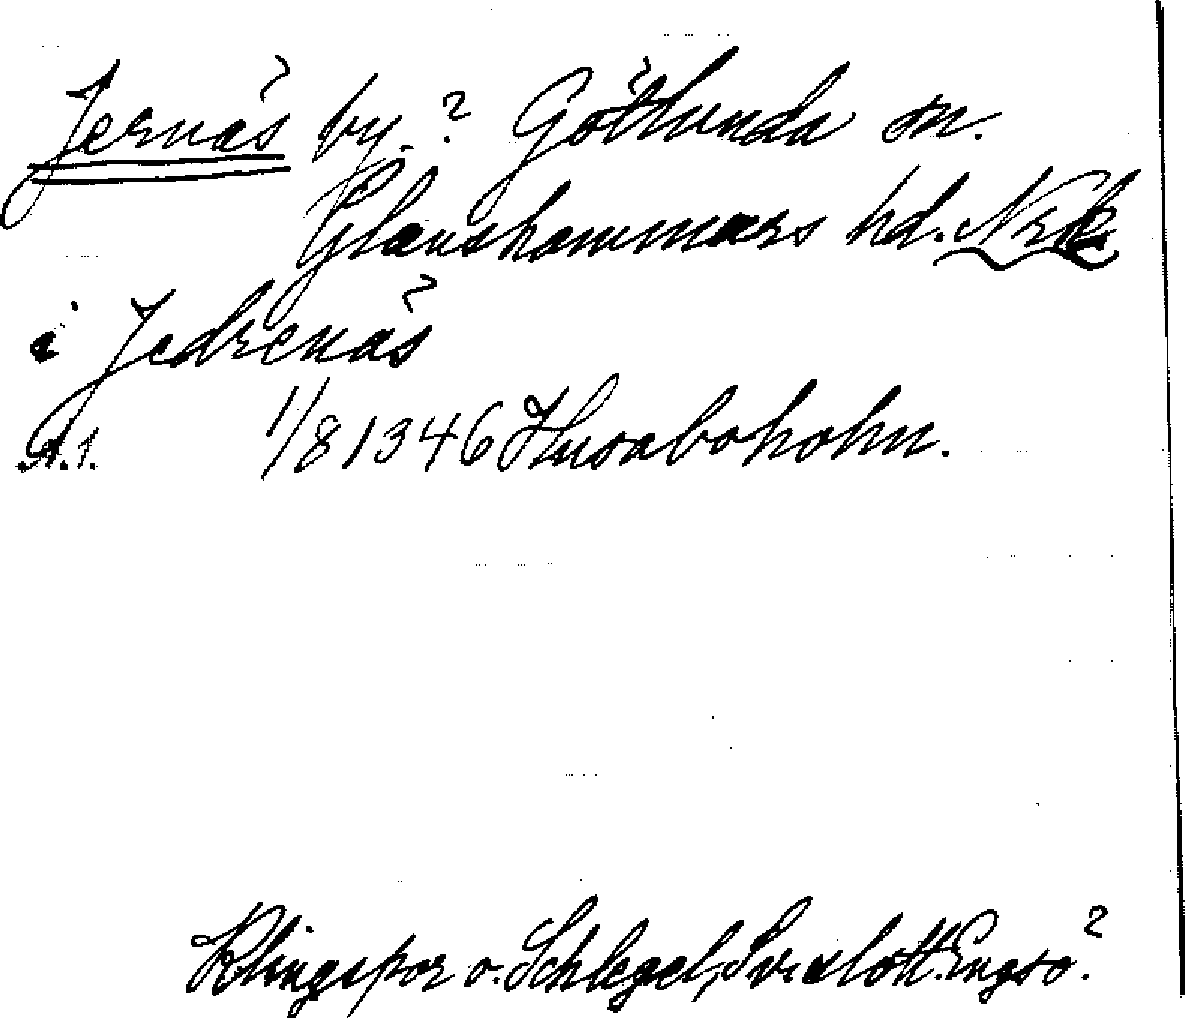 Jernäs by.? Götlunda sn.
Glanshammars hd. Nrk
i Jedrenäs
A.1. 1/8 1346 Husaboholm.
Klingspor o. Schlegel, Sv. slott. Engsö?